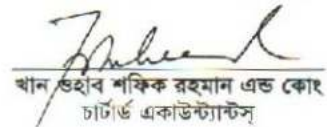 খান ওহাব শফিক রহমান এন্ড কোং
চার্টার্ড একাউন্ট্যান্টস্